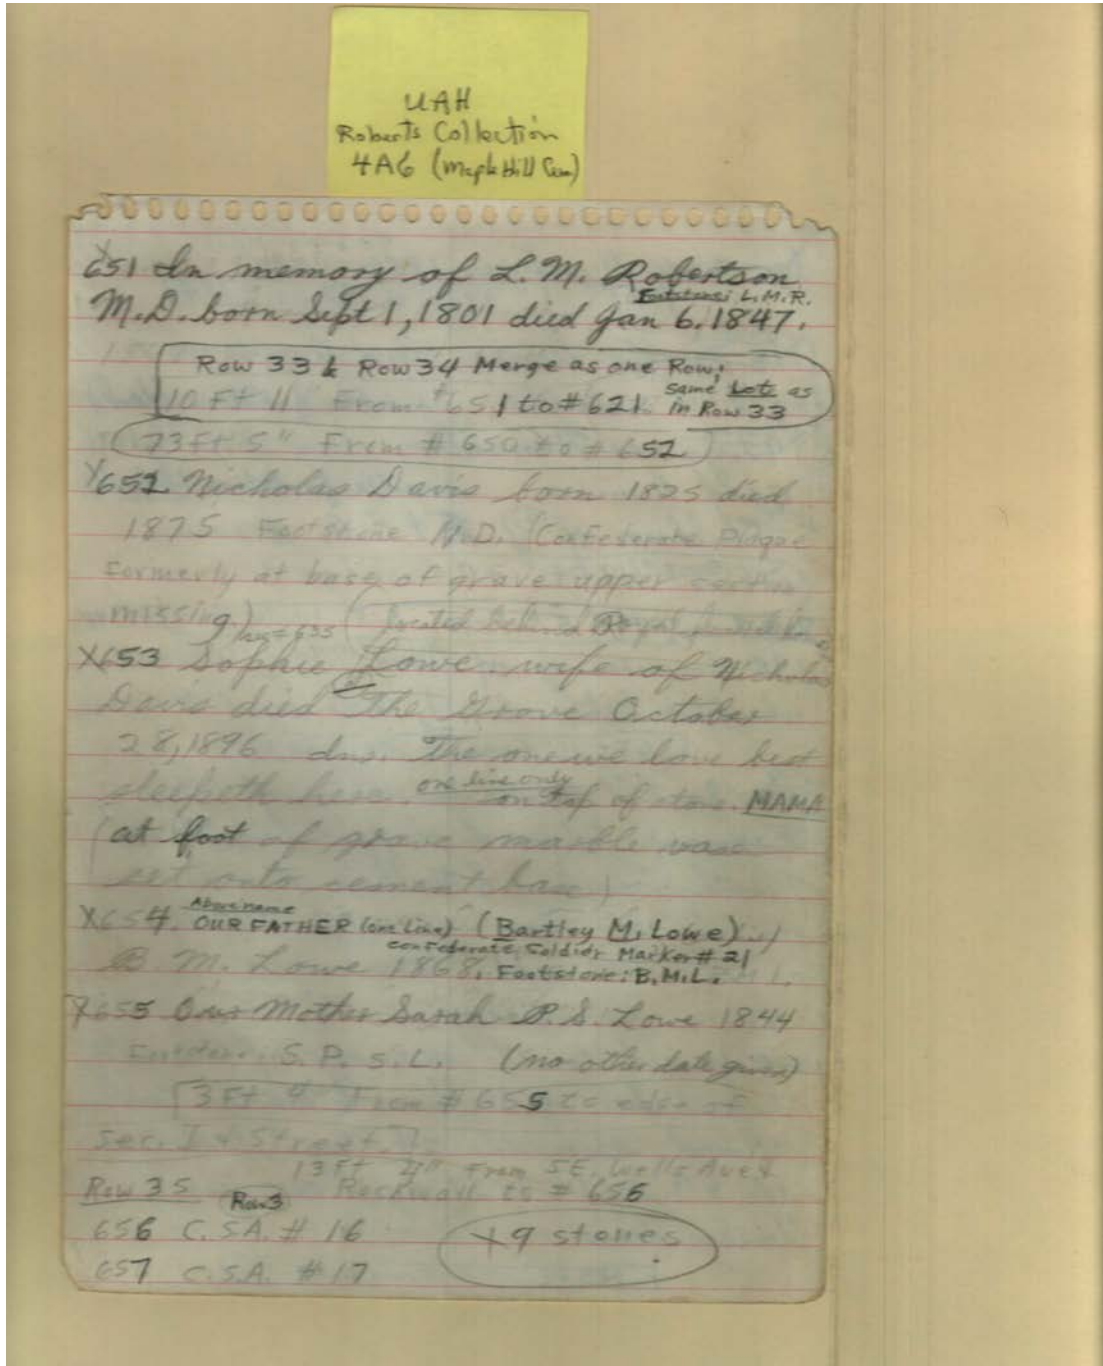 UAH
Roberts Collection
4A6 (Maple Hill Cem)
X651 In memory of L. M. Robertson
Footstone: L.M.R.
M.D. born Sept 1, 1801 died Jan 6. 1847.
Row 33 & Row 34 Merge as one Row;
same Lot as
10 Ft 11 From #651 to #621. in Row 33
73 Ft 5" From # 650 to # 652
X652 Nicholas Davis born 1825 died
1875 Footstone N.D. (Confederate Plaque
formerly at base of grave upper
missing.) (located
X653 Sophie Lowe wife of Nicholas
Davis died The Grove October
28, 1896 dns. The one we love best
sleepeth here. one line only on top of stone. MAMA
(at foot of grave marble vase
set onto cement base)
Above name
X654. OUR FATHER (one line) (Bartley M. Lowe)
Confederate Soldier Marker # 21
B. M. Lowe 1868. Footstone: B.M.L.
X655 Our Mother Sarah P. S. Lowe 1844
Footstone. S. P. S. L. (no other date given)
3 Ft 4" From # 655 to edge of
Sec. I & Street.
13 Ft From S.E. Wells Ave &
Row 35 Rockwall to # 656
Row 3
656 C.S.A. # 16
X9 stones
657 C.S.A. # 17